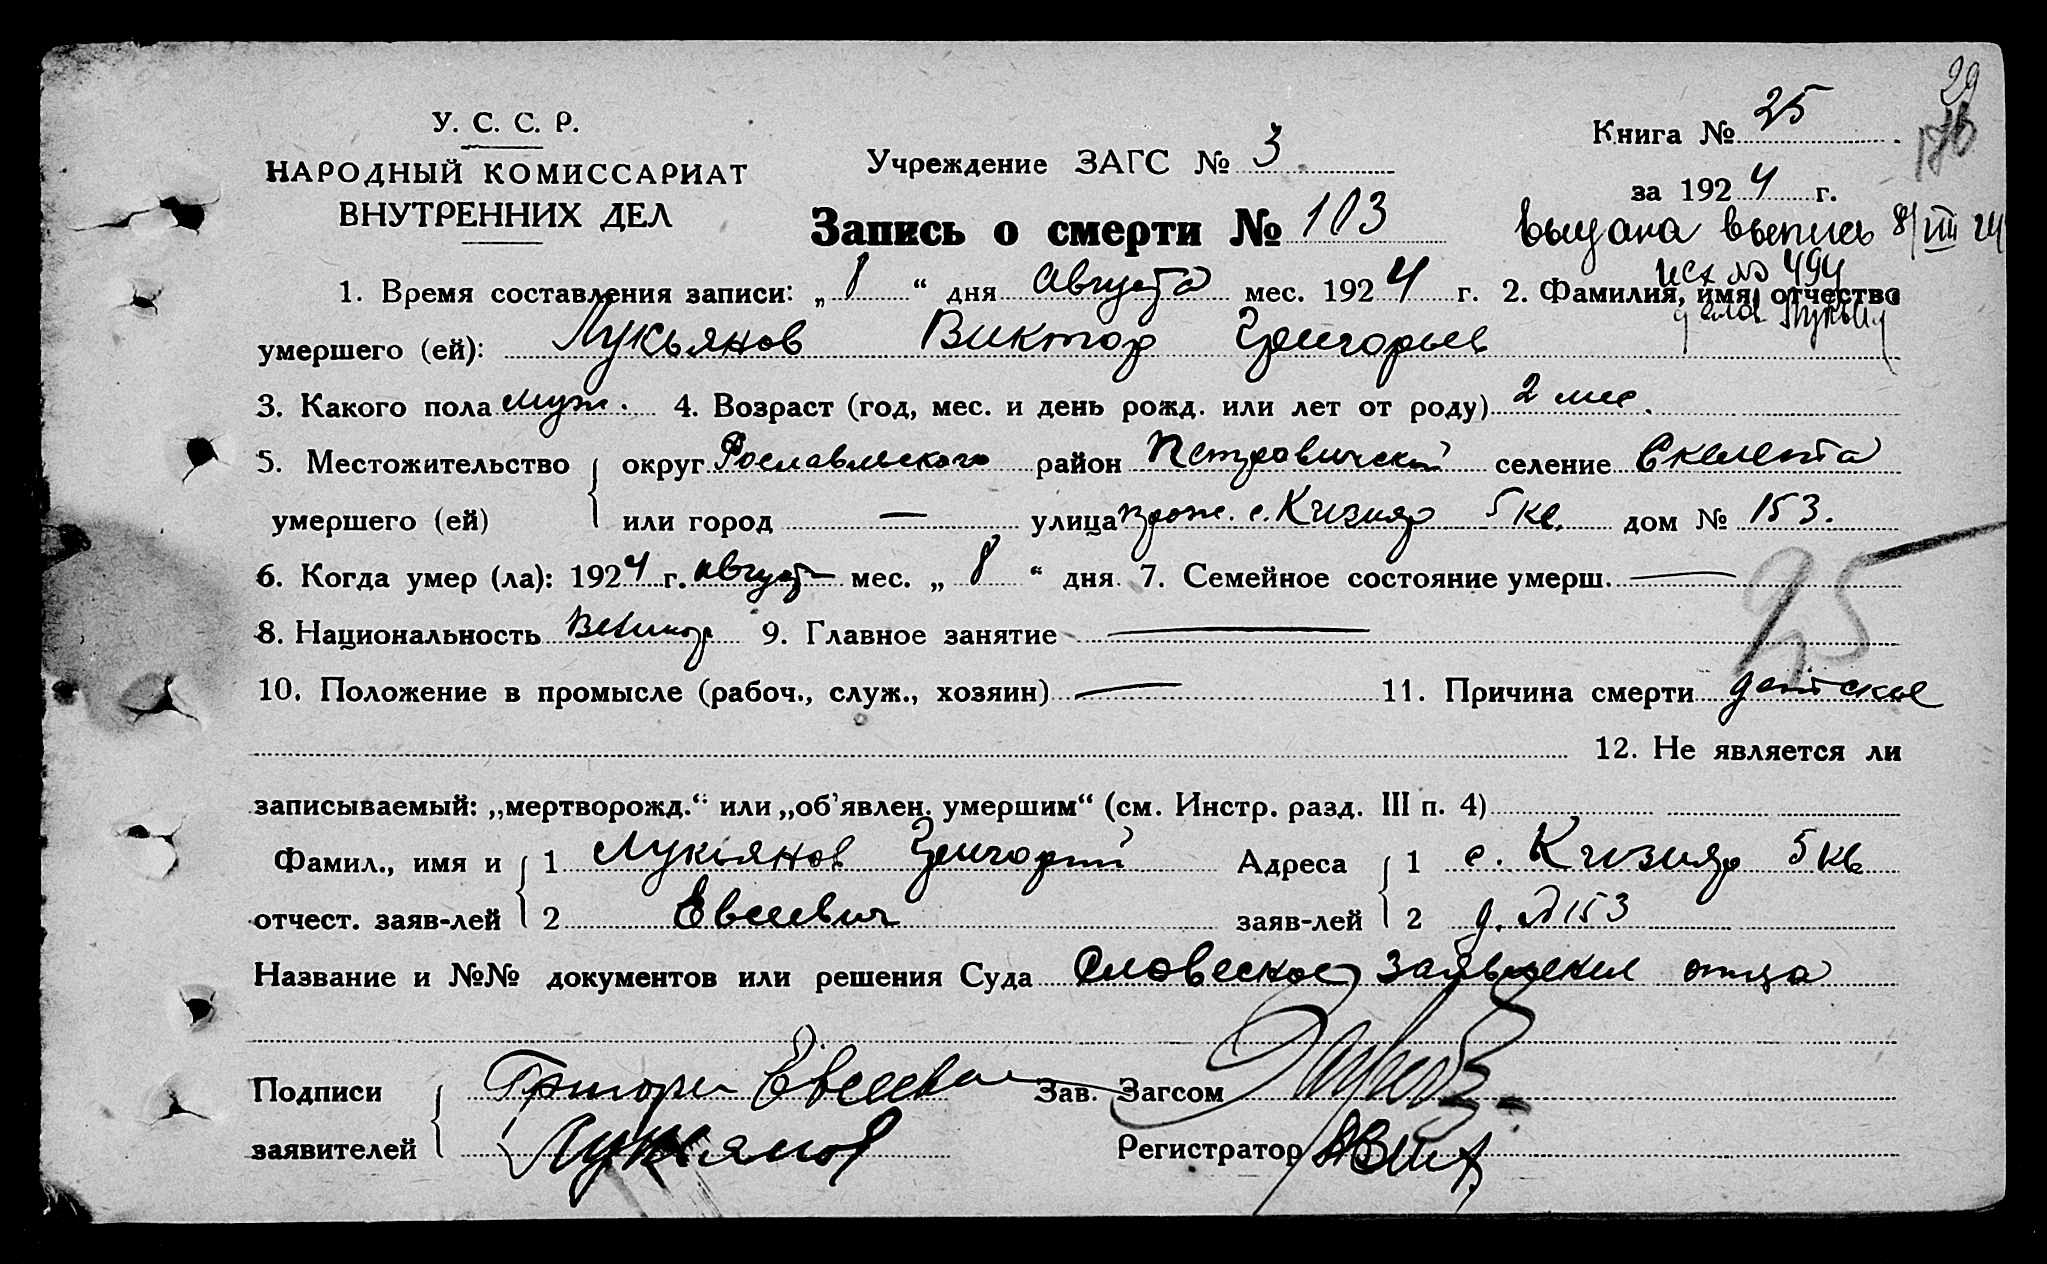 29
У. С. С. Р.
НАРОДНЫЙ КОМИССАРИАТ
ВНУТРЕННИХ ДЕЛ
Учреждение ЗАГС № 3
Книга № 25
за 1924 г.
Запись о смерти № 103
выдана выпись 8/VIII 24
исх № 494
1. Время составления записи: „8“ дня Августа мес. 1924 г. 2. Фамилия, имя, отчество
умершего (ей): Лукьянов Виктор Григорьев
3. Какого пола муж. 4. Возраст (год, мес. и день рожд. или лет от роду) 2 мес.
5. Местожительство округ Рославльского район Петровический селение
умершего (ей) или город — улица прож. с. Кизияр 5 кв. дом № 153.
6. Когда умер (ла): 1924 г. август мес. „8“ дня 7. Семейное состояние умерш. —
8. Национальность Великор 9. Главное занятие —
10. Положение в промысле (рабоч., служ., хозяин) — 11. Причина смерти детское
25
12. Не является ли
записываемый: „мертворожд.“ или „об'явлен. умершим“ (см. Инстр. разд. III п. 4)
Фамил., имя и 1 Лукьянов Григорий Адреса 1 с. Кизияр 5 кв
отчест. заяв-лей 2 Евсеевич заяв-лей 2 д. № 153
Название и №№ документов или решения Суда Словесное заявление отца
Подписи Григори Евсееви Зав. Загсом
заявителей Лукянов Регистратор